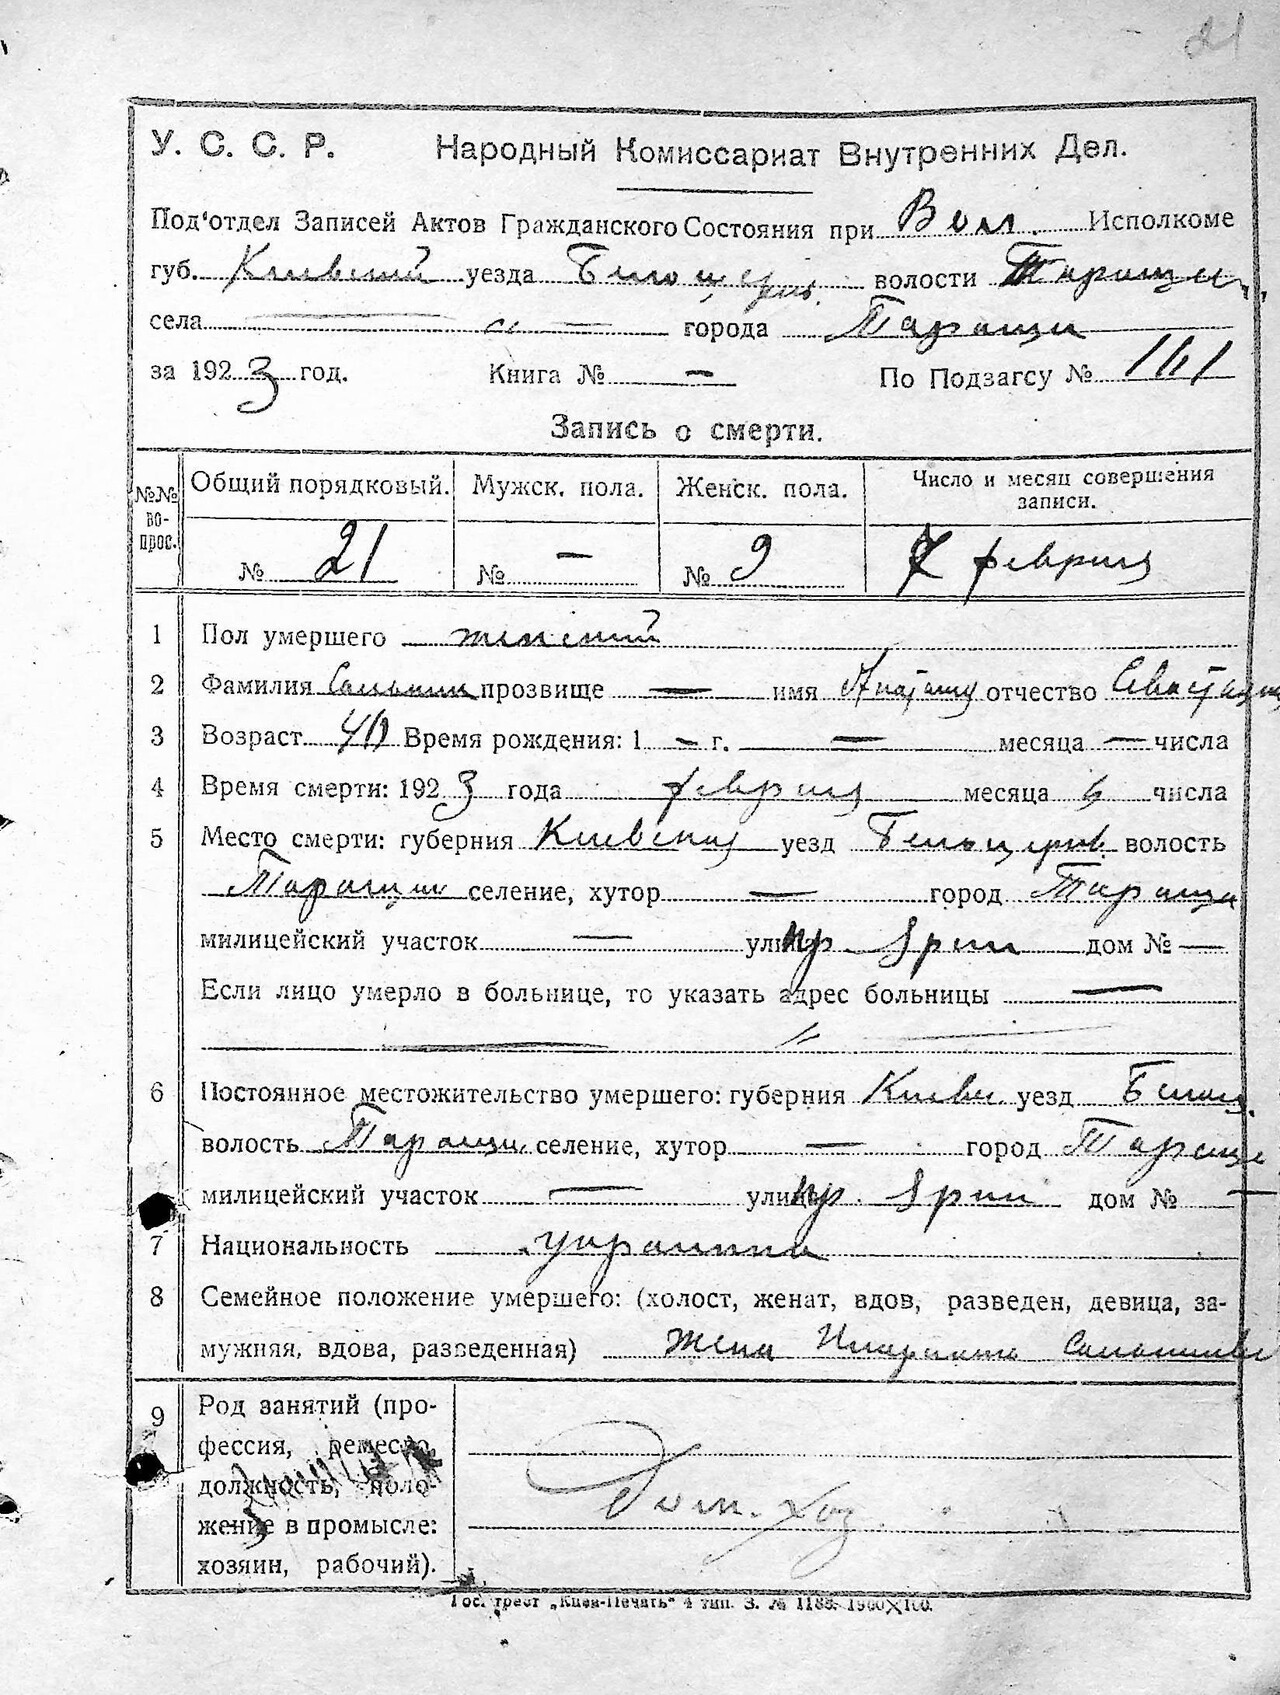 21
У. С. С. Р. Народный Комиссариат Внутренних Дел.
Под'отдел Записей Актов Гражданского Состояния при Вол. Исполкоме
губ. Киевский уезда Белоцерков. волости Таращан.
села — „ — города Таращи
за 1923 год. Книга № — По Подзагсу № 161
Запись о смерти.
№№ вопрос. Общий порядковый. Мужск. пола. Женск. пола. Число и месяц совершения записи.
№ 21 № — № 9 7 февраля
1 Пол умершего женский
2 Фамилия прозвище — имя отчество
3 Возраст 40 Время рождения: 1 — г. — месяца — числа
4 Время смерти: 1923 года февраля месяца 6 числа
5 Место смерти: губерния Киевская уезд Белоцерков. волость
селение, хутор — город Тараща
милицейский участок — улица дом № —
Если лицо умерло в больнице, то указать адрес больницы —
— „ —
6 Постоянное местожительство умершего: губерния Киевс. уезд Белоц.
волость Таращан. селение, хутор — город Тараща
милицейский участок — улица дом № —
7 Национальность украинка
8 Семейное положение умершего: (холост, женат, вдов, разведен, девица, за-
мужняя, вдова, разведенная) жена
9 Род занятий (про-
фессия, ремесло,
должность, поло-
жение в промысле:
хозяин, рабочий).
Дом. Хоз.
Гос. трест „Киев-Печать" 4 тип. З. № 1188. 1960✕100.